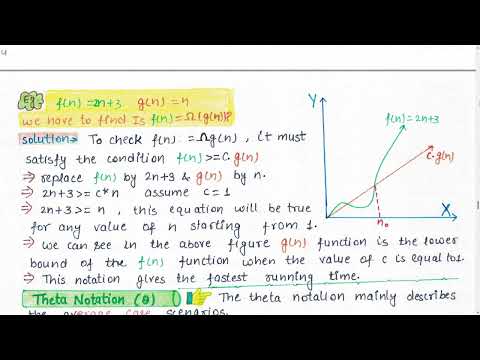 4
Eg:- f(n) = 2n+3 g(n) = n
we have to find Is f(n) = Ω(g(n))?
solution→ To check f(n) = Ωg(n), it must
satisfy the condition f(n) >= c.g(n)
⇒ replace f(n) by 2n+3 & g(n) by n.
⇒ 2n+3 >= c*n assume c = 1
⇒ 2n+3 >= n , this equation will be true
for any value of n starting from 1.
⇒ we can see in the above figure g(n) function is the lower
bound of the f(n) function when the value of c is equal to 1.
⇒ This notation gives the fastest running time.
Theta Notation (θ) The theta notation mainly describes
the average case scenarios.
Y
f(n) = 2n+3
c.g(n)
X
n₀